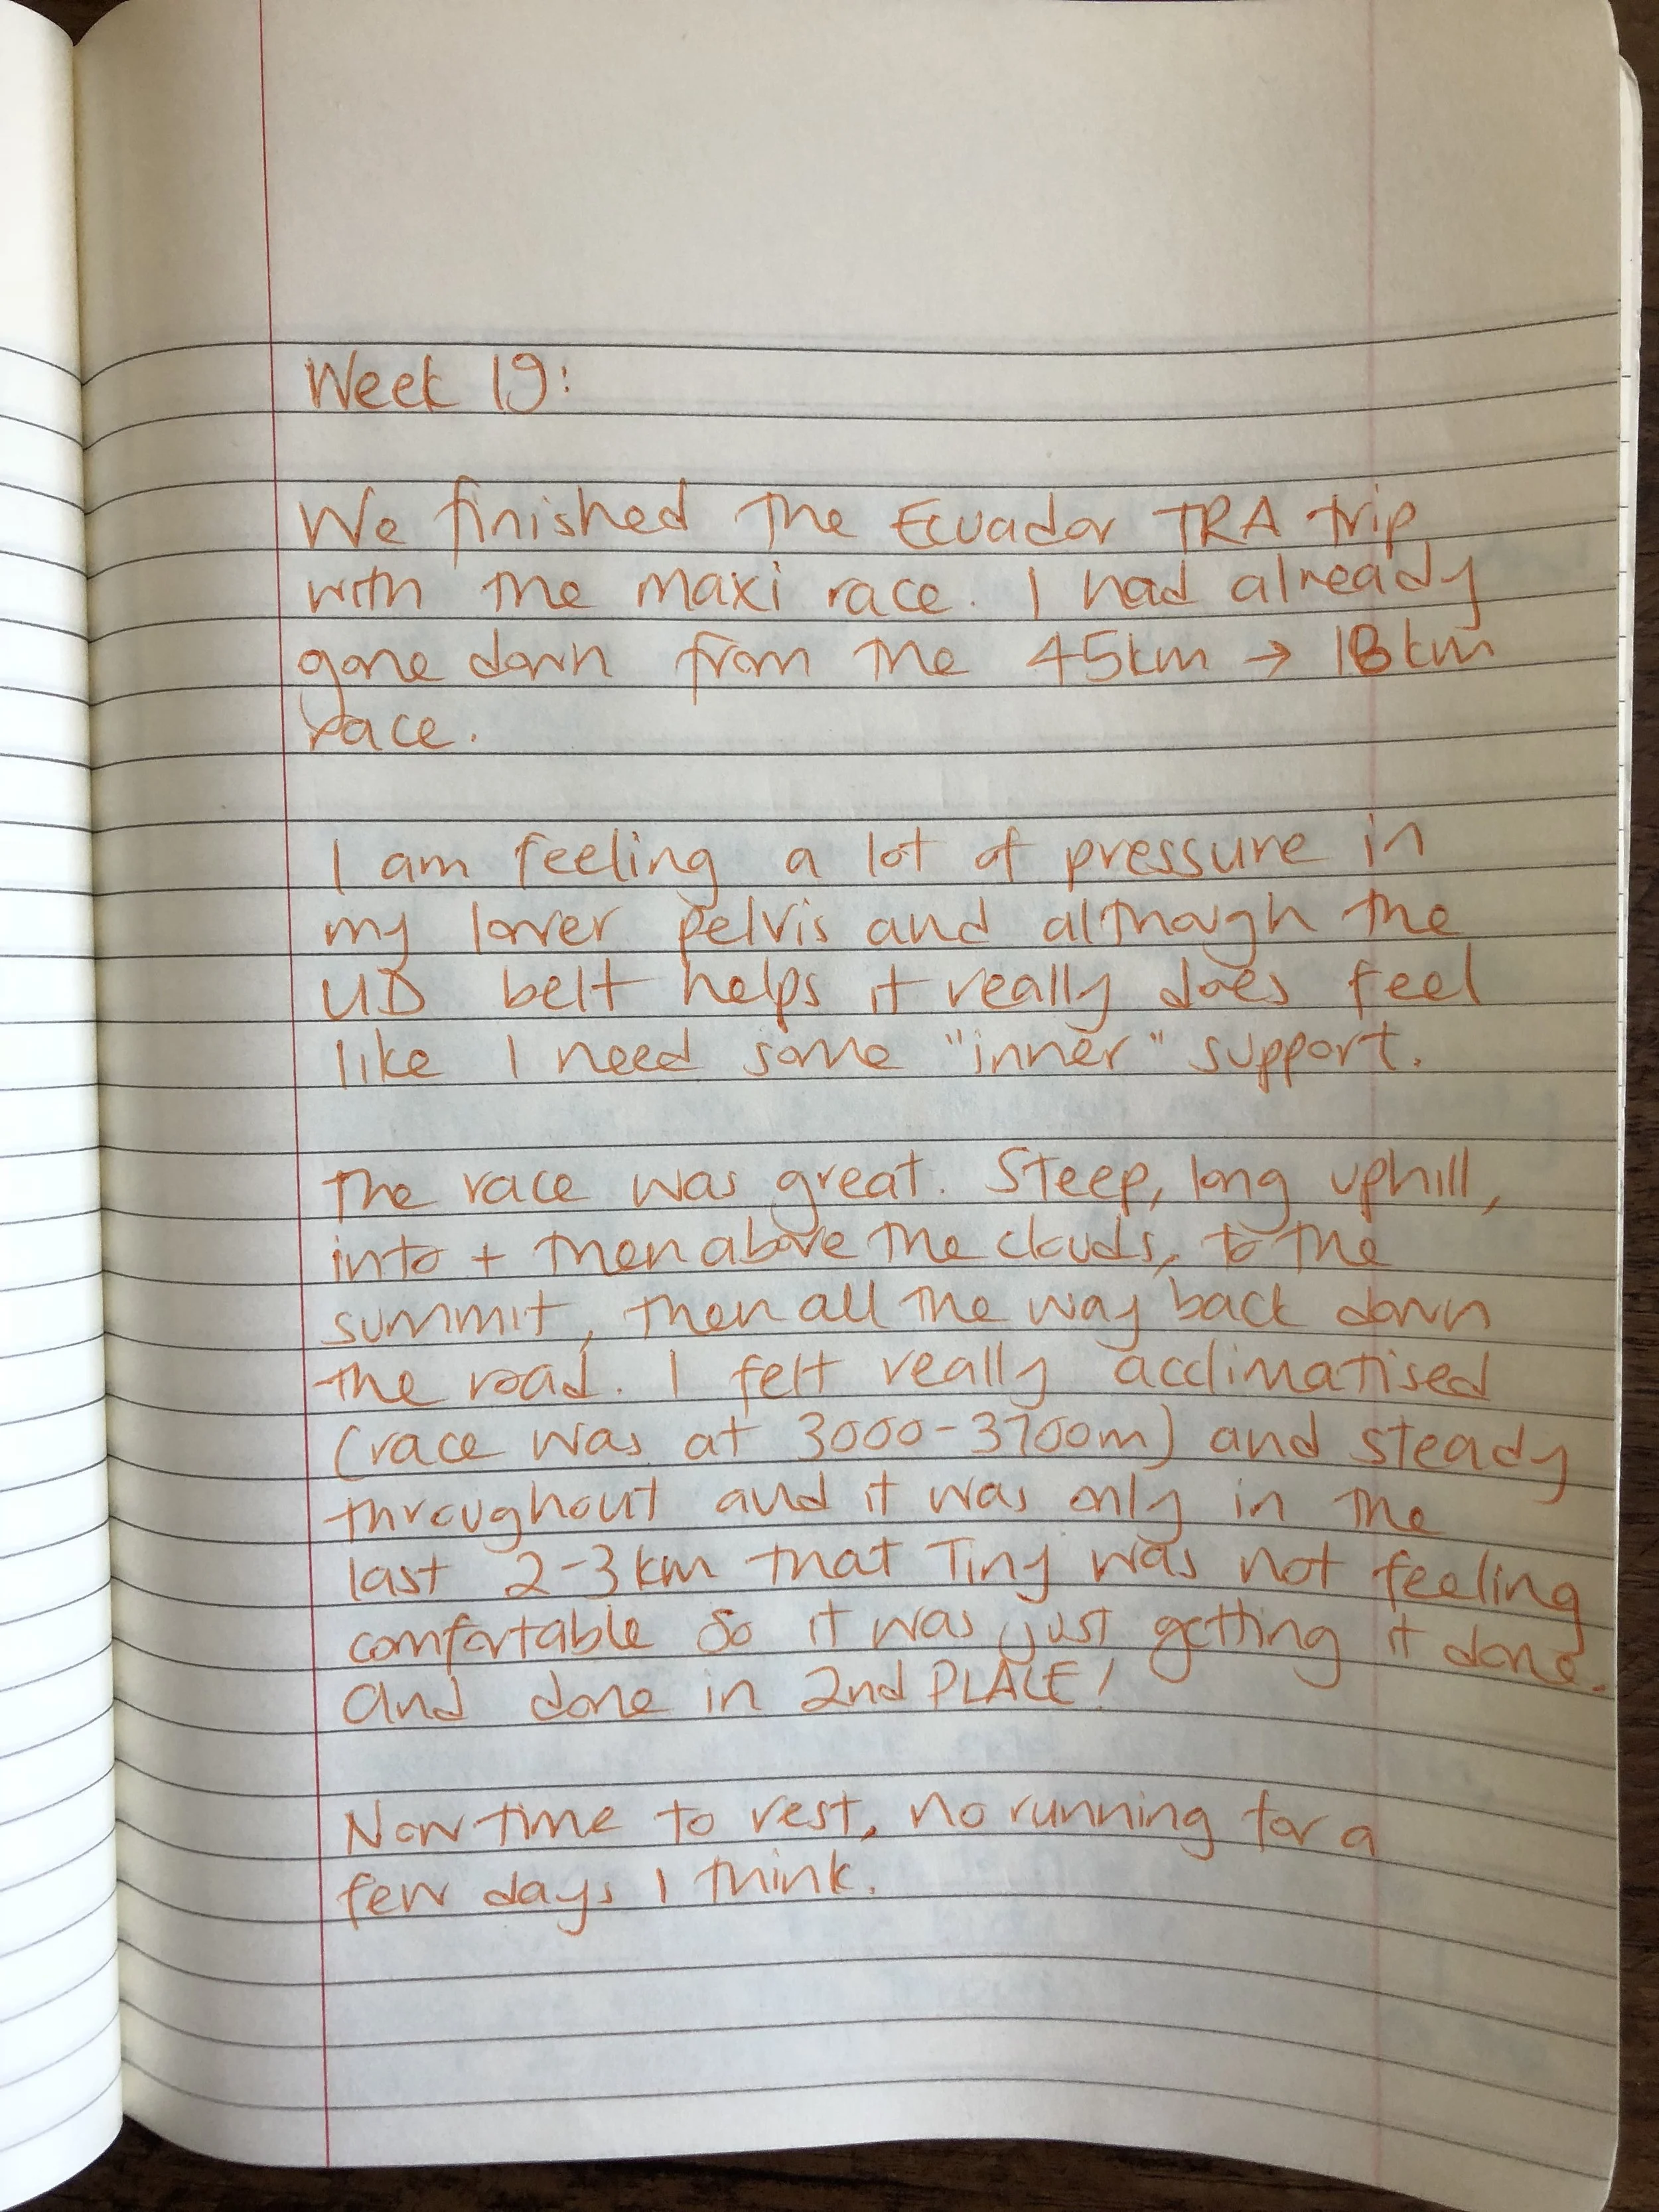 Week 19:
We finished the Ecuador TRA trip
with the maxi race. I had already
gone down from the 45km → 18km
race.
I am feeling a lot of pressure in
my lower pelvis and although the
UD belt helps it really does feel
like I need some "inner" support.
The race was great. Steep, long uphill,
into + then above the clouds, to the
summit, then all the way back down
the road. I felt really acclimatised
(race was at 3000-3700m) and steady
throughout and it was only in the
last 2-3km that Tiny was not feeling
comfortable so it was just getting it done.
And done in 2nd PLACE!
Now time to rest, no running for a
few days I think.